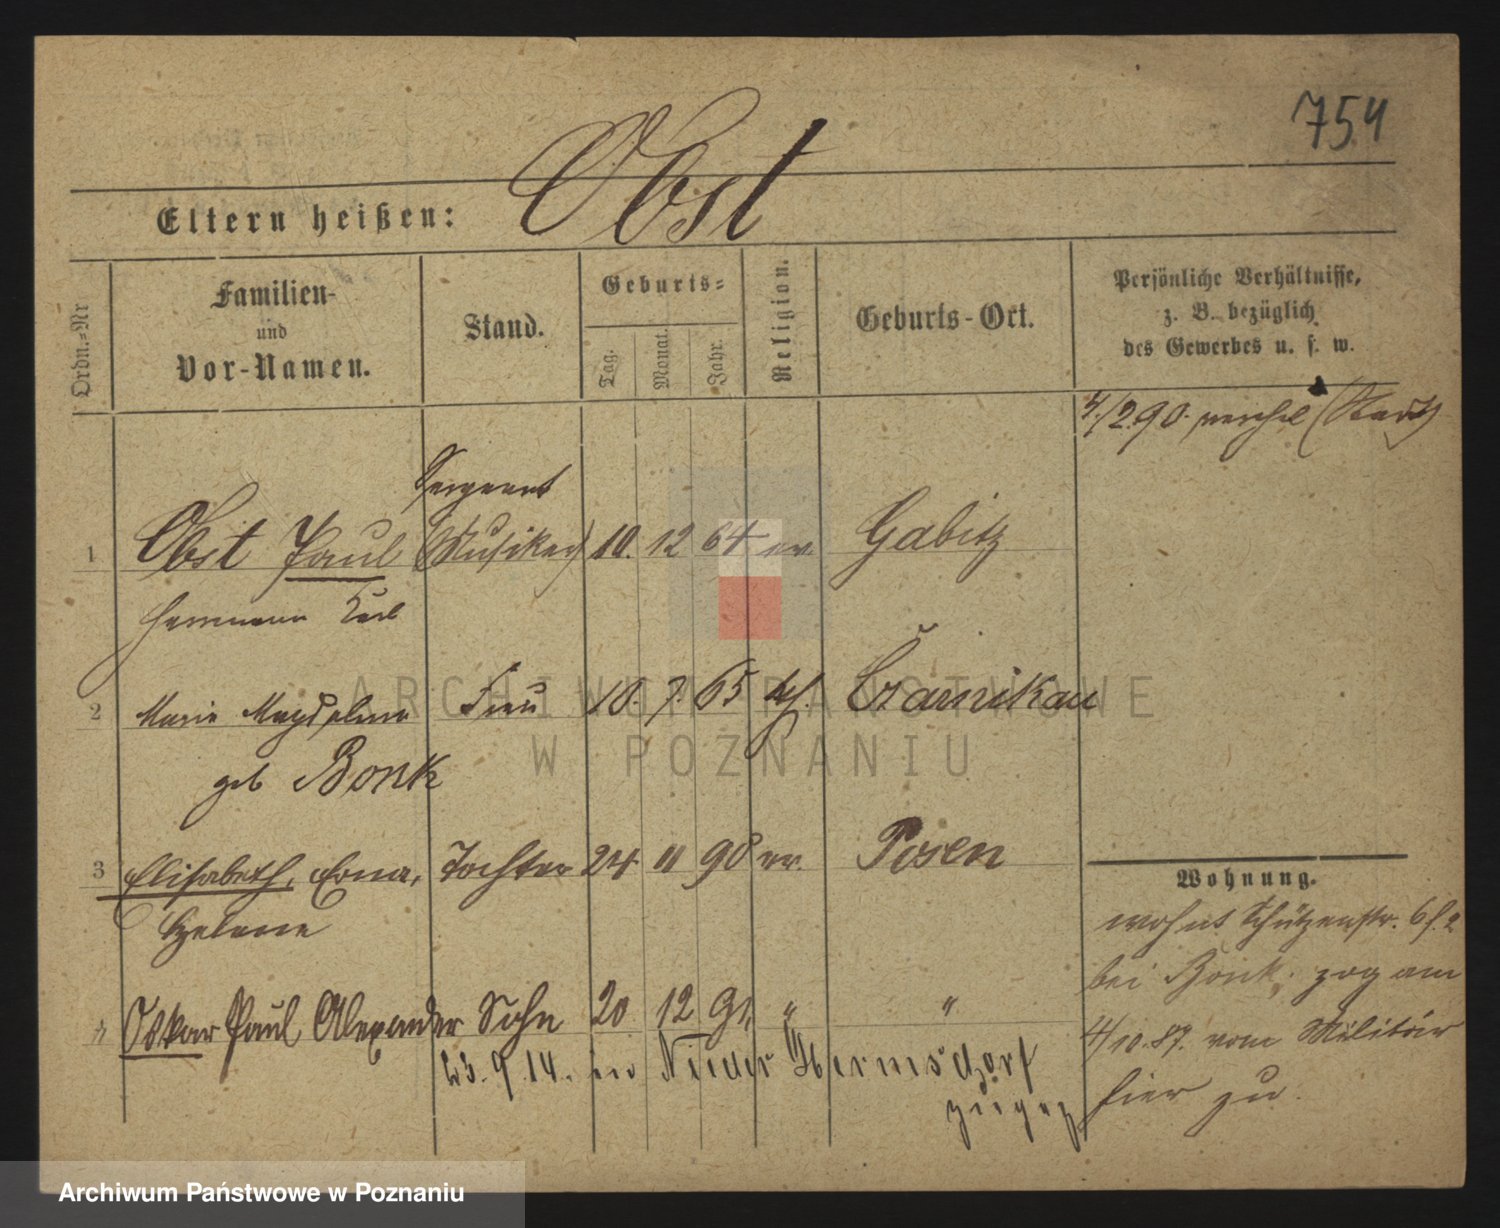 754
Eltern heißen: Obst
Ordn.-Nr
Familien-
und
Vor-Namen.
Stand.
Geburts-
Tag.
Monat.
Jahr.
Religion.
Geburts-Ort.
Persönliche Verhältnisse,
z. B. bezüglich
des Gewerbes u. s. w.
4/2.90.
Sergeant
1 Obst Paul (Musiker) 10. 12 64 ev Gabitz
Hermann Karl
2 Marie Magdalena Frau 10. 7. 65 kth. Czarnikau
geb Bonk
3 Elisabeth, Erna, Tochter 24. 11 90 ev. Posen
Helene
4 Oskar Paul Alexander Sohn 20 12 91 " "
23. 9. 14. in Nieder Hermsdorf
zugez
Wohnung.
wohnt Schützenstr. 6
bei Bonk, zog am
4/10.87. vom Militär
hier zu.
ARCHIWUM PAŃSTWOWE
W POZNANIU
Archiwum Państwowe w Poznaniu